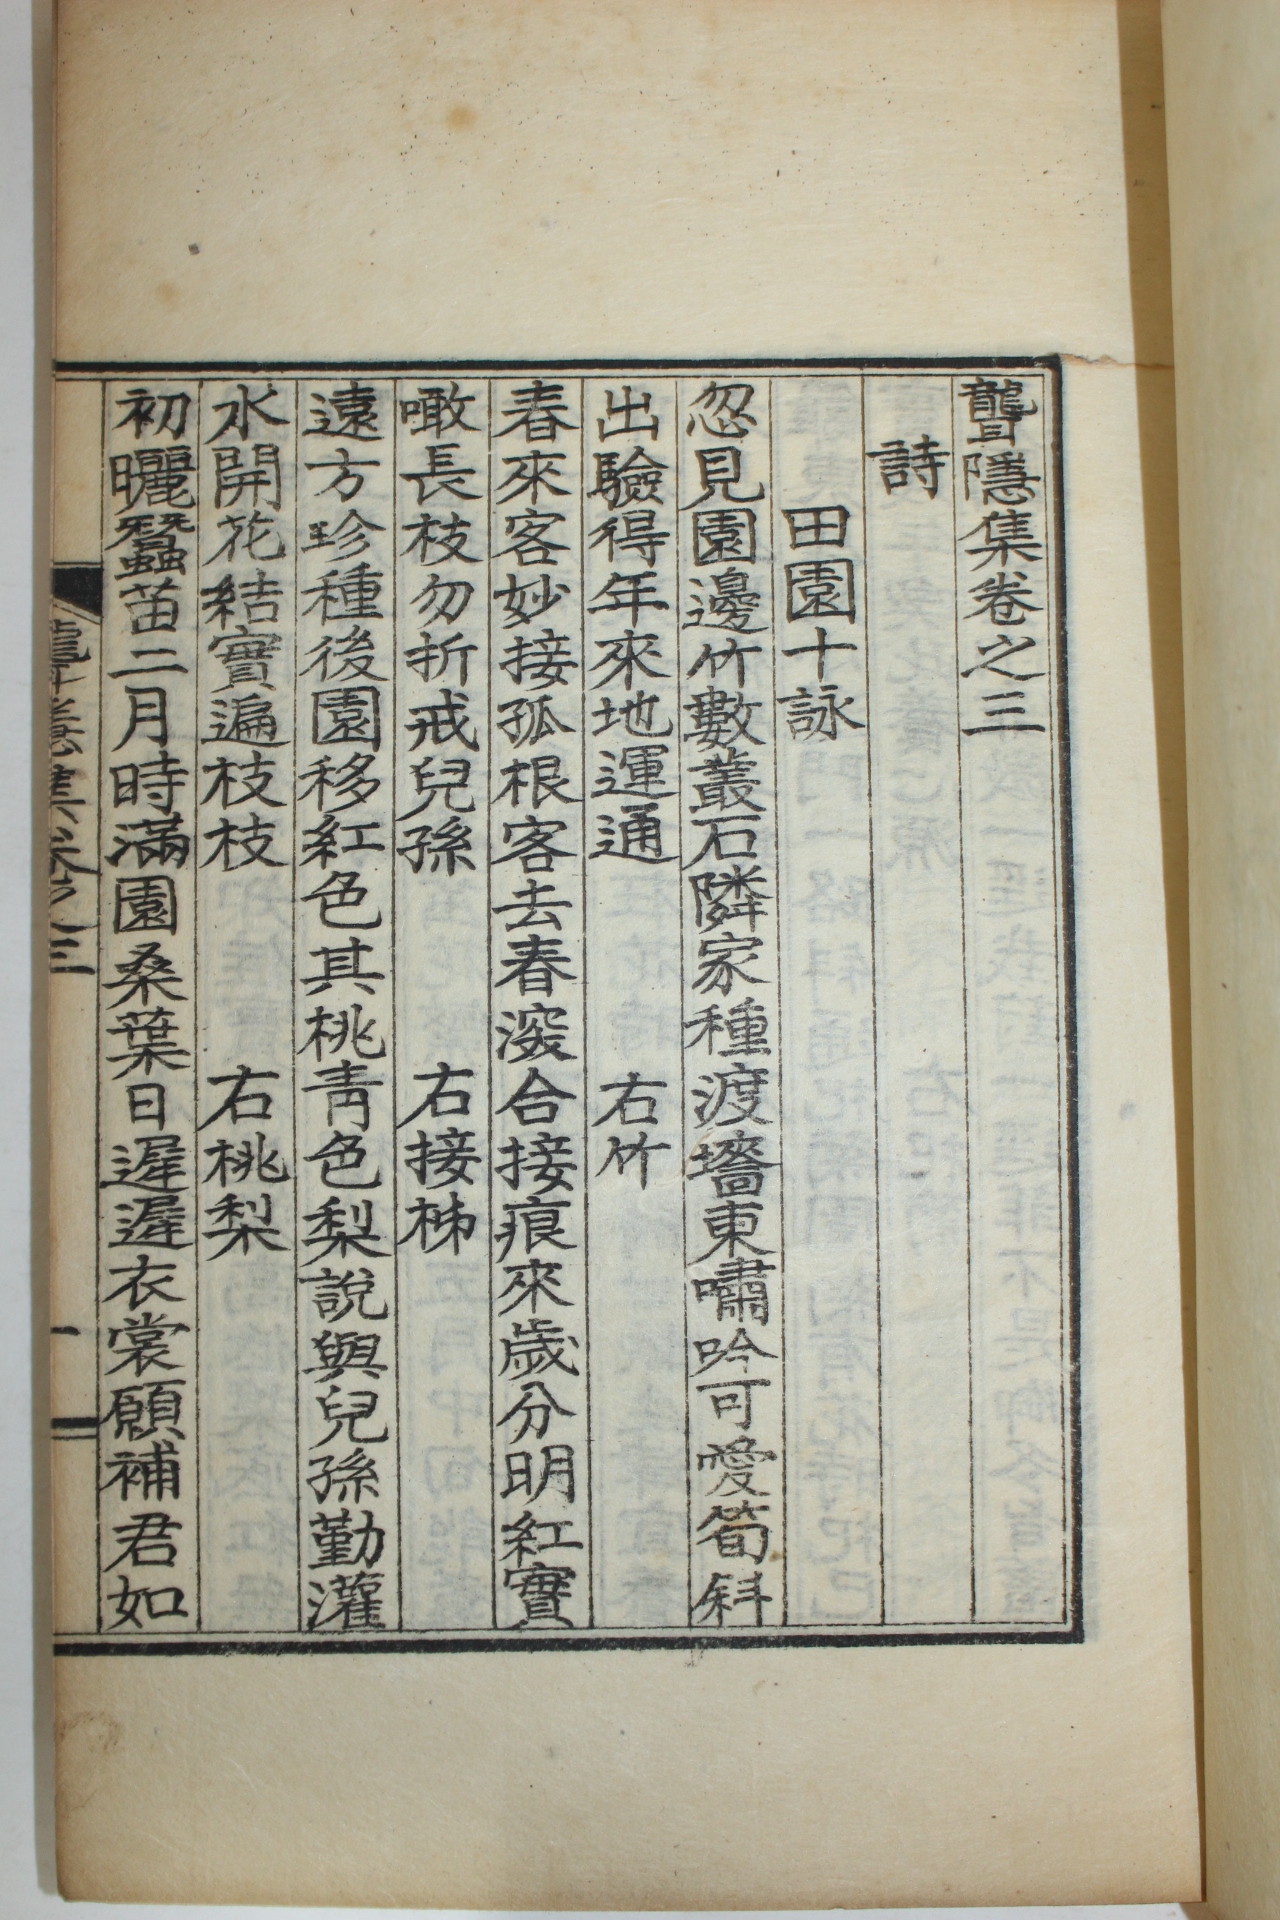 聾隱集卷之三
詩
田園十詠
忽見園邊竹數叢石隣家種渡墻東嘯吟可愛筍斜
出驗得年來地運通　右竹
春來客妙接孤根客去春深合接痕來歲分明紅實
噉長枝勿折戒兒孫　右接柹
遠方珍種後園移紅色其桃靑色梨說與兒孫勤灌
水開花結實遍枝枝　右桃梨
初曬蠶苗二月時滿園桑葉日遲遲衣裳願補君如
聾隱集卷之三　一